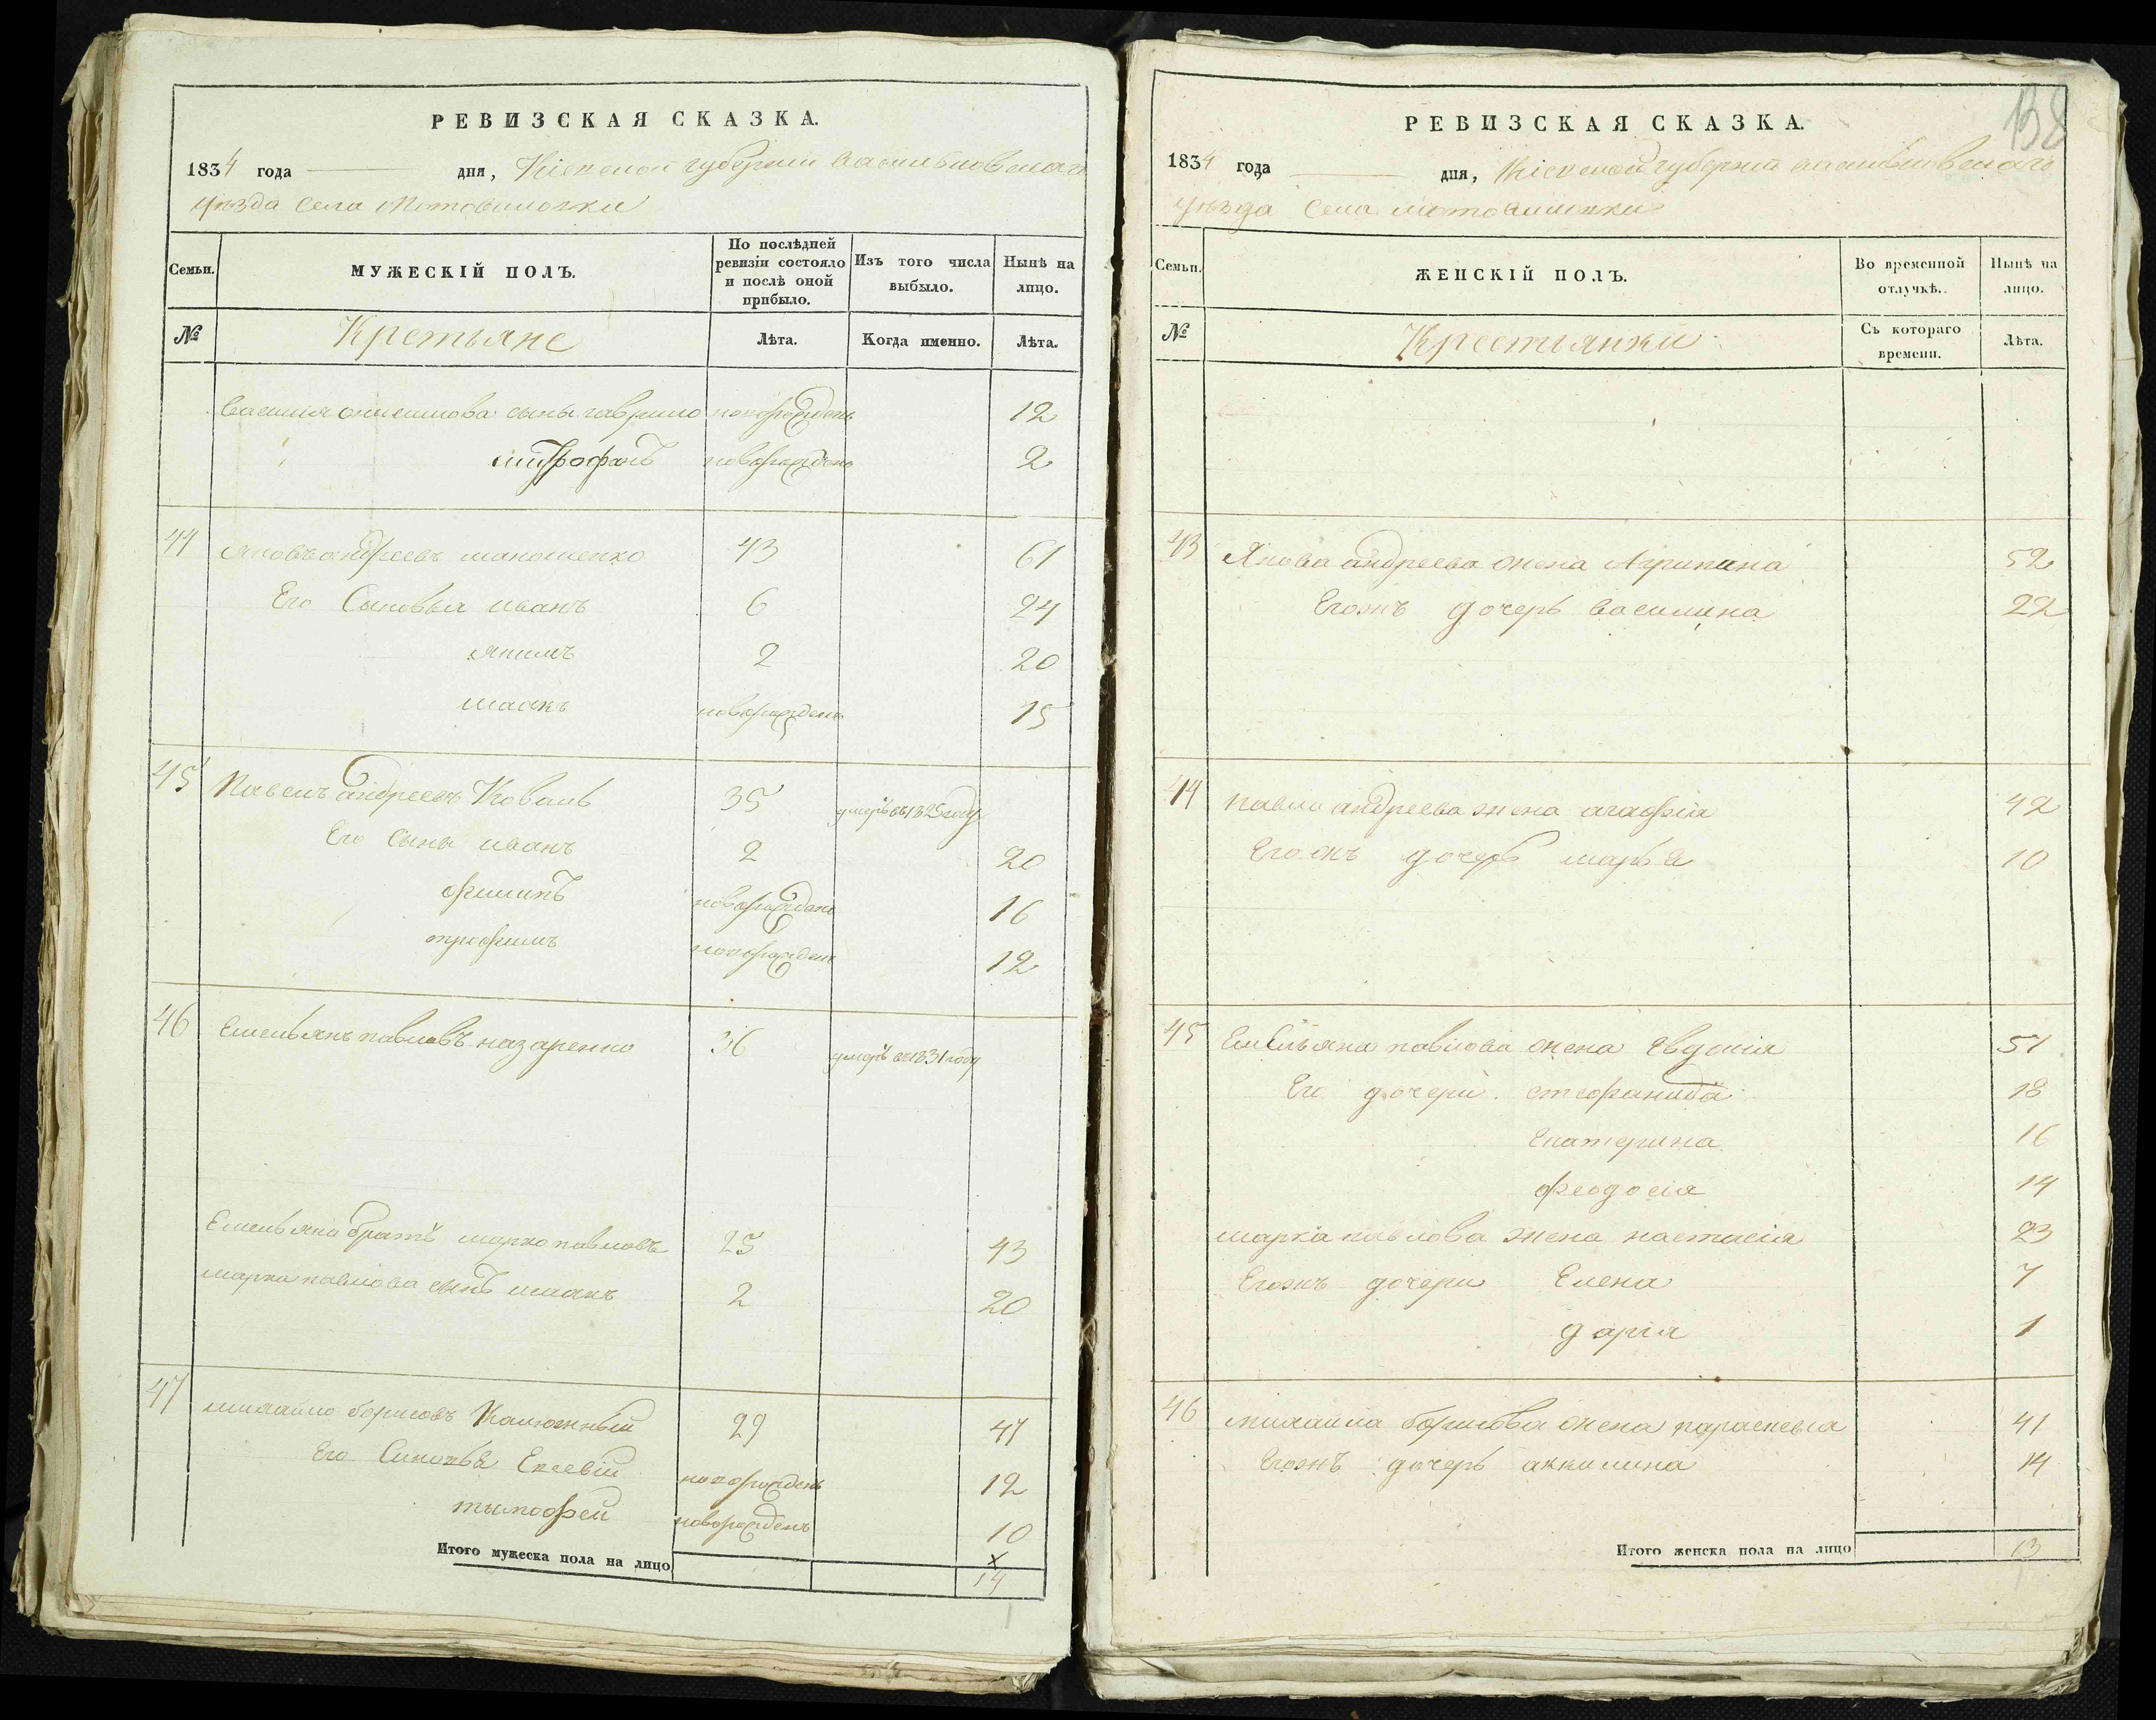 РЕВИЗСКАЯ СКАЗКА.
1834 года дня, Кіевской губерніи васильковскаго
уѣзда села Мотовиловки
Семьи. МУЖЕСКІЙ ПОЛЪ. По послѣдней ревизіи состояло и послѣ оной прибыло. Изъ того числа выбыло. Нынѣ на лицо.
№ Кретьяне Лѣта. Когда именно. Лѣта.
василия онисимова сыны гаврило новорожденъ 12
митрофанъ новорожденъ 2
44 яковъ андреевъ 43 61
Его Сыновья иванъ 6 24
якимъ 2 20
новорожденъ 15
45 Павелъ андреевъ Коваль 35 умеръ въ 1825 году
Его сыны иванъ 2 20
филипъ новорожденъ 16
трофимъ новорожденъ 12
46 Емельянъ павловъ назаренко 36 умеръ въ 1831 году
Емельяна братъ марко павловъ 25 43
марка павлова сынъ 2 20
47 михайло борисовъ Калюжный 29 47
Его новорожденъ 12
тымофей новорожденъ 10
х
Итого мужеска пола на лицо 14
138
РЕВИЗСКАЯ СКАЗКА.
1834 года дня, Кіевской губерніи васильковскаго
уѣзда Села мотовиловки
Семьи. ЖЕНСКІЙ ПОЛЪ. Во временной отлучкѣ. Нынѣ на лицо.
№ Крестьянки Съ котораго времени. Лѣта.
43 Якова андреева жена Агрипина 52
Егожъ дочерь василина 22
44 павла андреева жена агафія 42
Егожъ дочерь марья 10
45 Емельяна павлова жена Евдокія 51
Его дочери стефанида 18
Екатерина 16
феодосія 14
марка павлова жена настасія 23
Егожъ дочери Елена 7
дарія 1
46 михайла борисова жена параскевіа 41
Егожъ дочерь аккилина 14
Итого женска пола на лицо 13